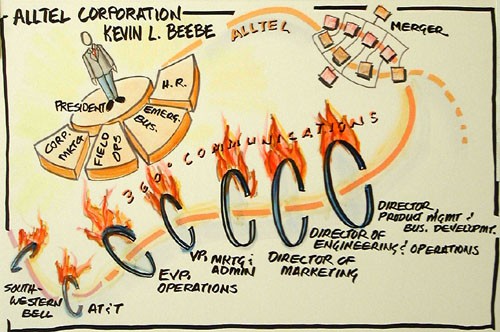 ALLTEL CORPORATION
KEVIN L. BEEBE
ALLTEL
MERGER
PRESIDENT
H.R.
EMERG.
BUS.
FIELD
OPS
CORP.
MKTG
360° COMMUNICATIONS
DIRECTOR
PRODUCT MGMT &
BUS. DEVELPMT.
DIRECTOR OF
ENGINEERING & OPERATIONS
DIRECTOR OF
MARKETING
VP, MKTG &
ADMIN
EVP,
OPERATIONS
AT&T
SOUTH-
WESTERN
BELL